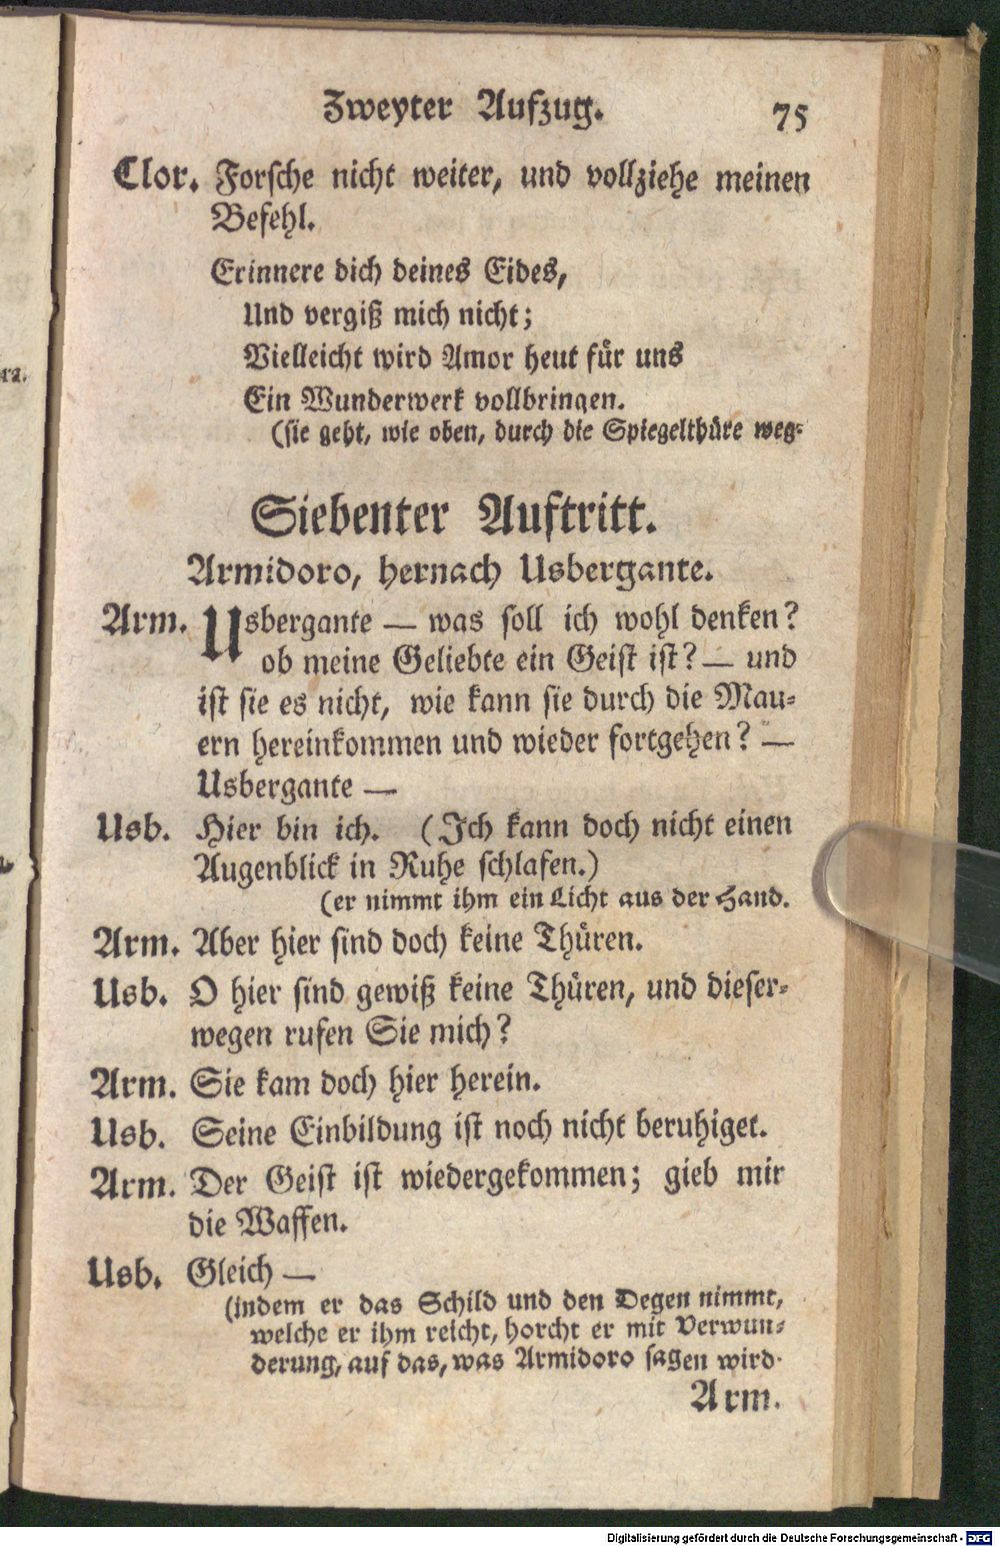 Zweyter Aufzug. 75
Clor. Forsche nicht weiter, und vollziehe meinen
Befehl.
Erinnere dich deines Eides,
Und vergiß mich nicht;
Vielleicht wird Amor heut für uns
Ein Wunderwerk vollbringen.
(sie geht, wie oben, durch die Spiegelthüre weg.
Siebenter Auftritt.
Armidoro, hernach Usbergante.
Arm. Usbergante — was soll ich wohl denken?
ob meine Geliebte ein Geist ist? — und
ist sie es nicht, wie kann sie durch die Mau-
ern hereinkommen und wieder fortgehen? —
Usbergante —
Usb. Hier bin ich. (Ich kann doch nicht einen
Augenblick in Ruhe schlafen.)
(er nimmt ihm ein Licht aus der Hand.
Arm. Aber hier sind doch keine Thüren.
Usb. O hier sind gewiß keine Thüren, und dieser-
wegen rufen Sie mich?
Arm. Sie kam doch hier herein.
Usb. Seine Einbildung ist noch nicht beruhiget.
Arm. Der Geist ist wiedergekommen; gieb mir
die Waffen.
Usb. Gleich —
(indem er das Schild und den Degen nimmt,
welche er ihm reicht, horcht er mit Verwun-
derung, auf das, was Armidoro sagen wird.
Arm.
Digitalisierung gefördert durch die Deutsche Forschungsgemeinschaft - DFG